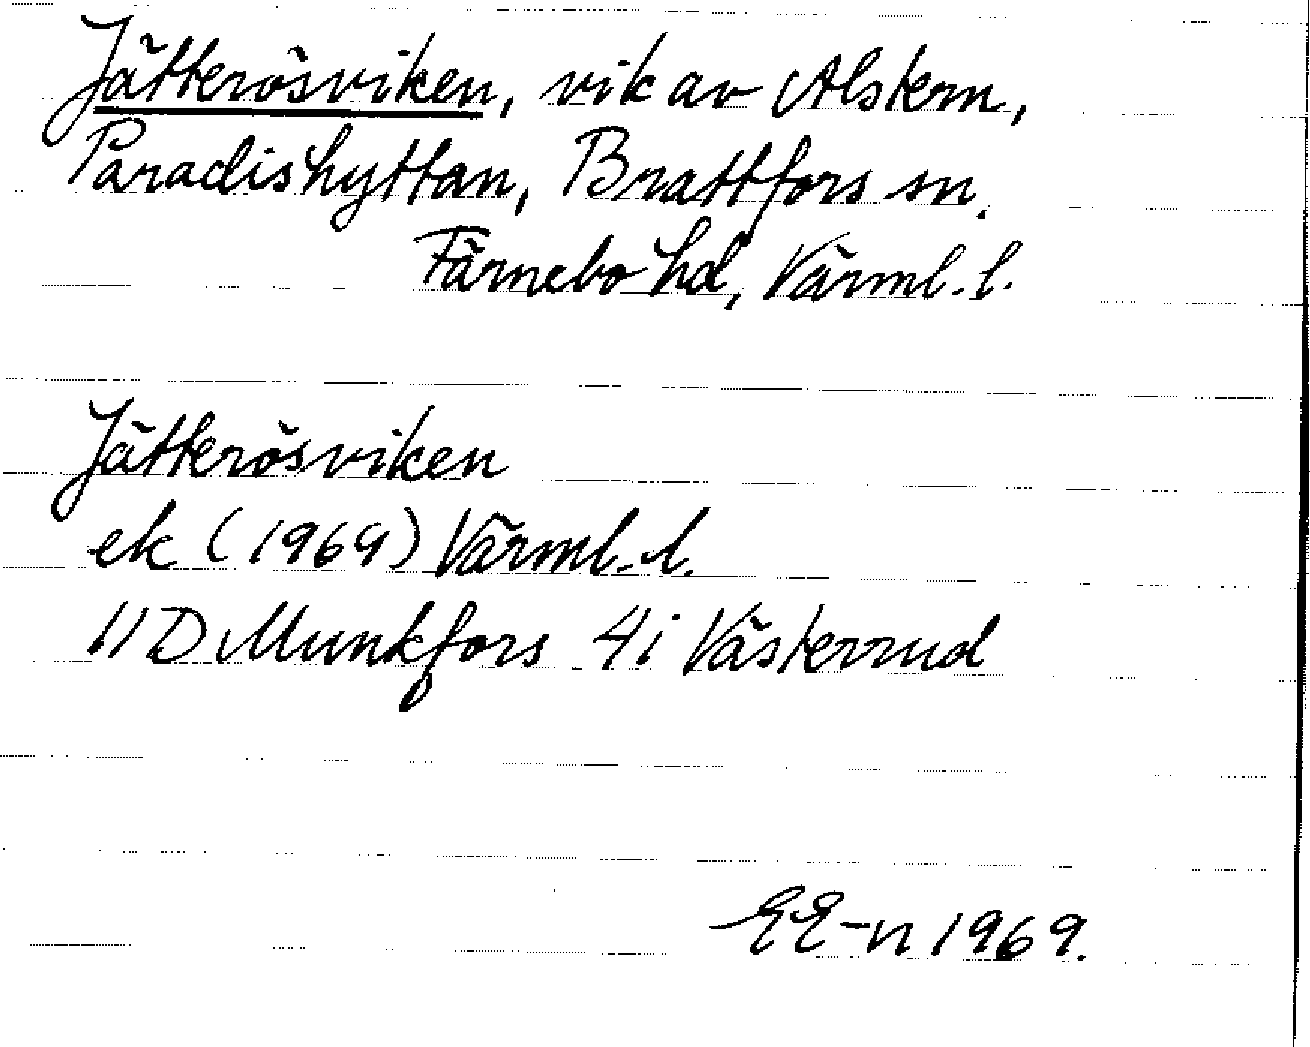 Jätterösviken, vik av Alstern,
Paradishyttan, Brattfors sn.
Färnebo hd, Värml. l.
Jätterösviken
ek (1969) Värml. l.
11D Munkfors 4i Västerrud
EE-n 1969.